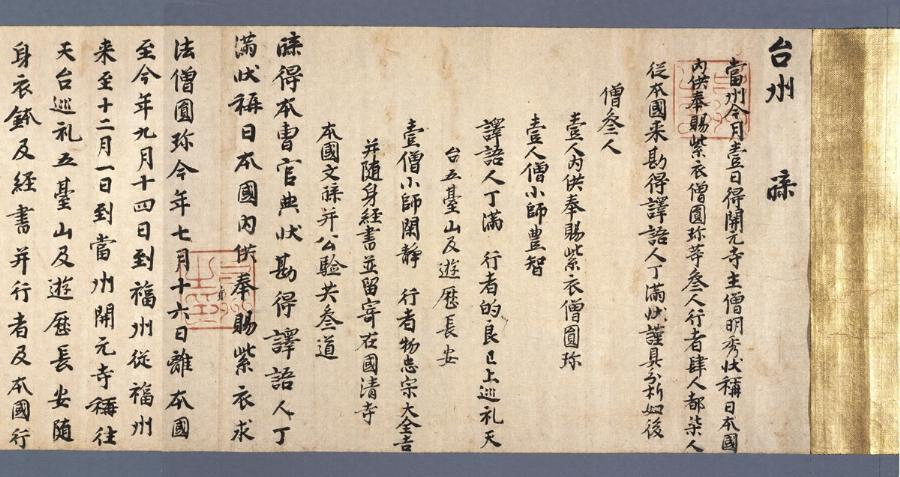 台州　牒
當州今月壹日得開元寺主僧明秀狀稱日本國
內供奉賜紫衣僧圓珍等叁人行者肆人都柒人
從本國來勘得譯語人丁滿狀謹具分析如後
僧叁人
壹人內供奉賜紫衣僧圓珎
壹人僧小師豊智
譯語人丁滿　行者的良已上巡礼天
台五臺山及遊歷長安
壹僧小師閑靜　行者物忠宗大全吉
并隨身經書並留寄在國清寺
本國文牒并公驗共叁道
牒得本曹官典狀勘得譯語人丁
滿狀稱日本國內供奉賜紫衣求
法僧圓珎今年七月十六日離本國
至今年九月十四日到福州從福州
来至十二月一日到當州開元寺稱往
天台巡礼五臺山及遊歷長安隨
身衣鉢及經書并行者及本國行